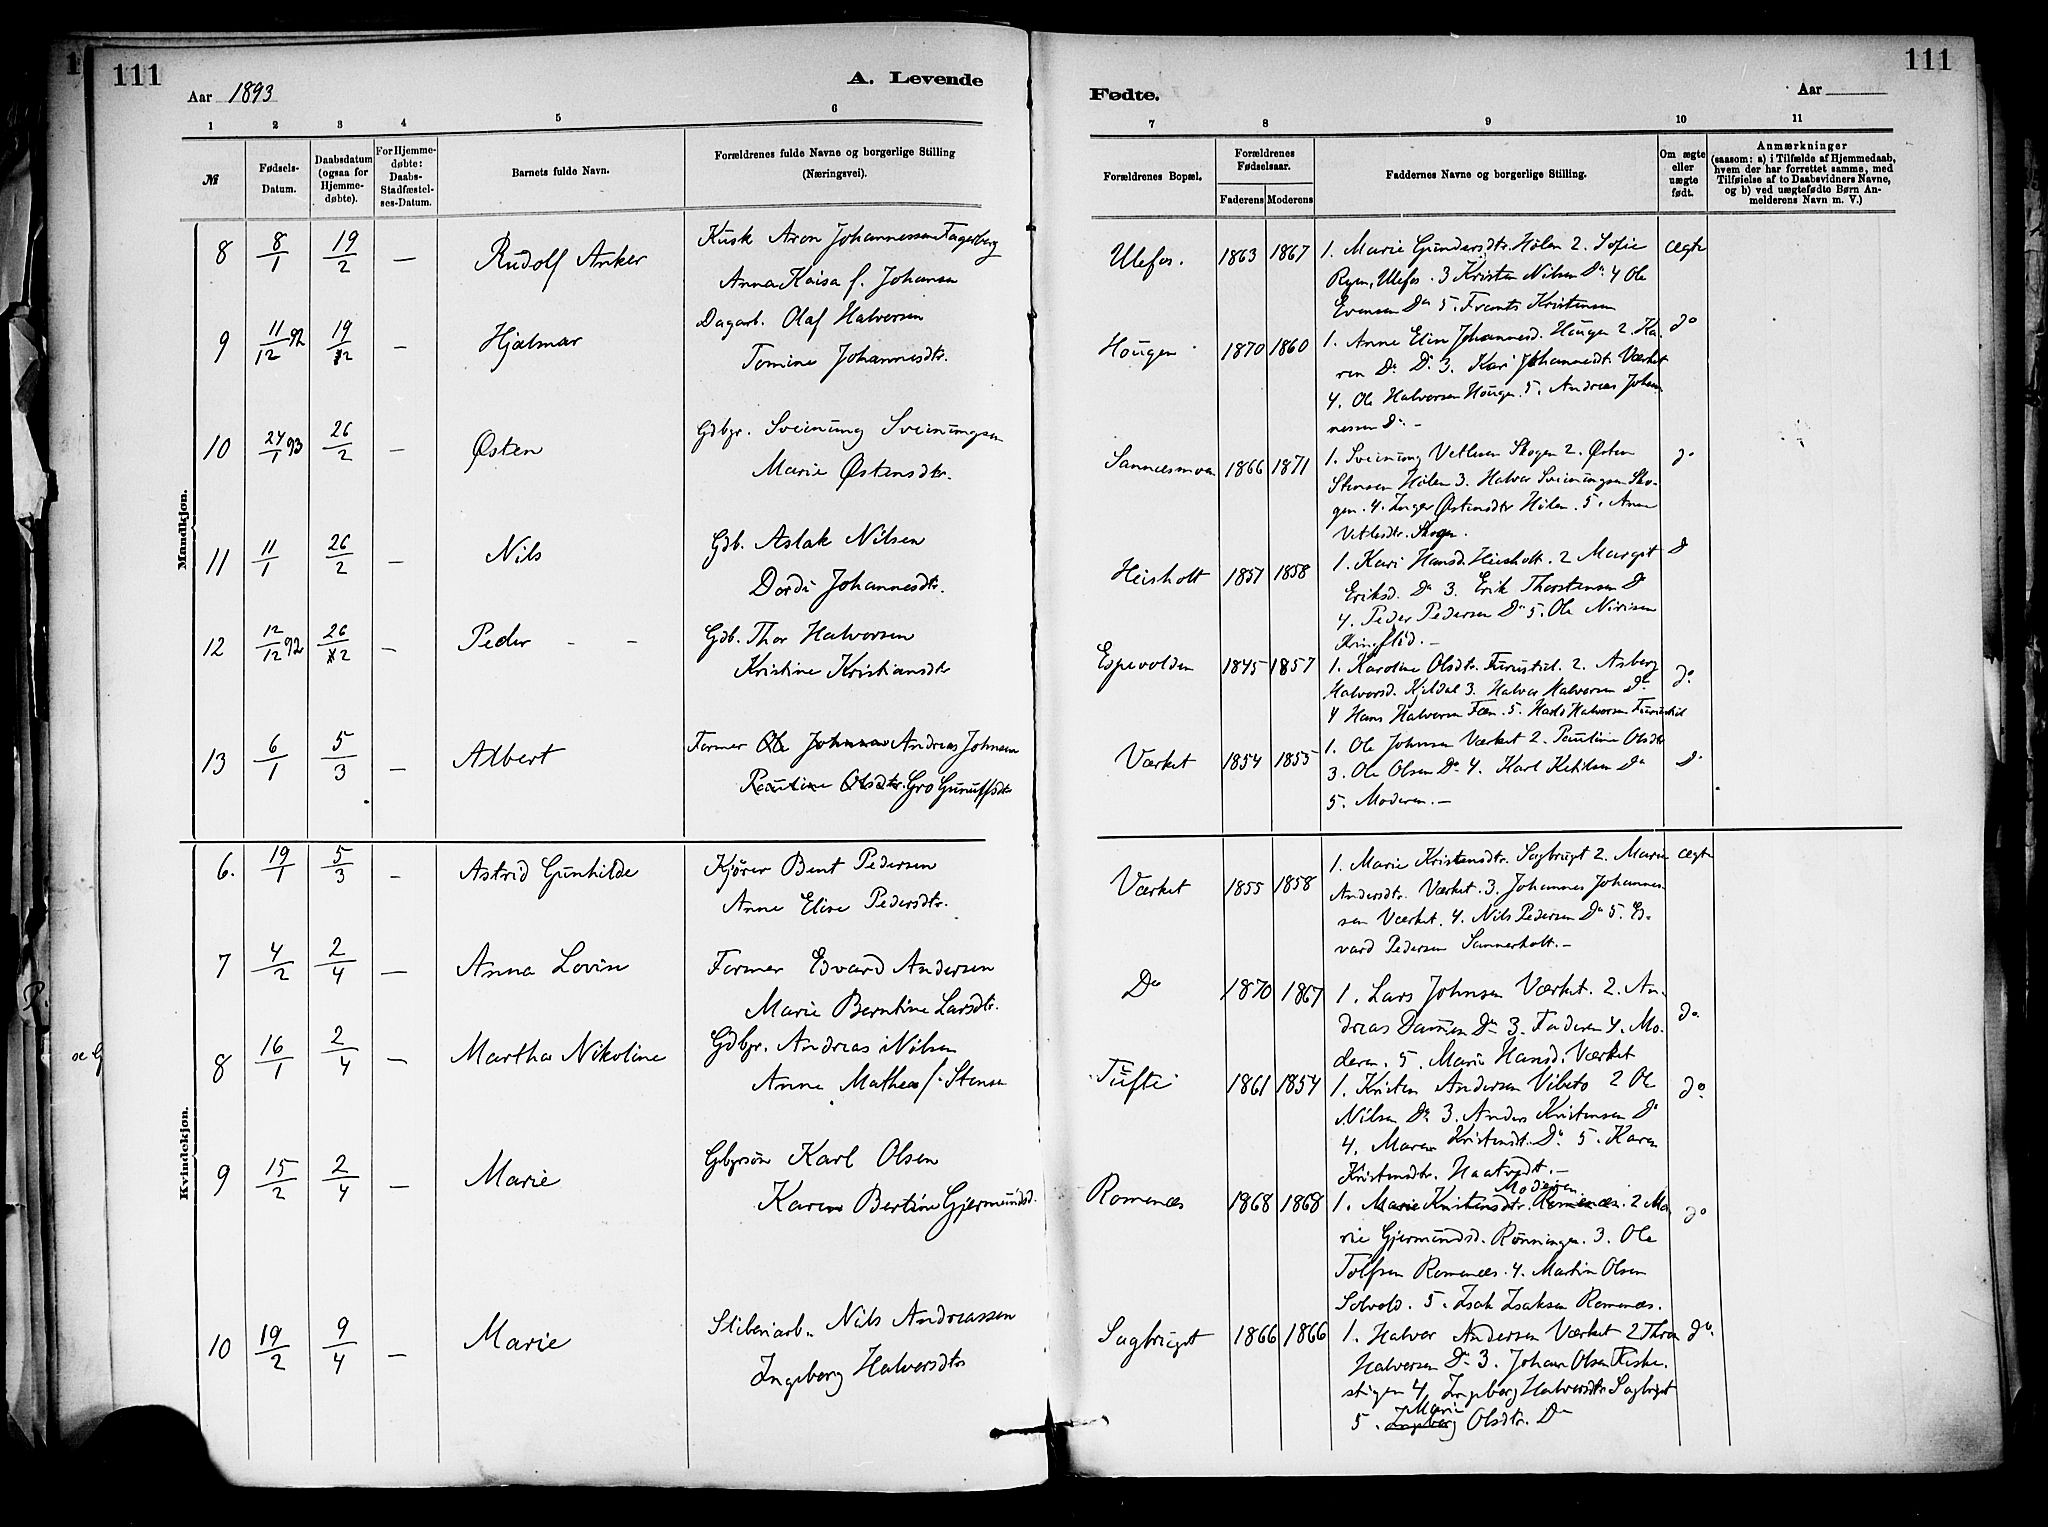 111
Aar 1893
A. Levende
1 2 3 4 5 6
№
Fødsels-
Datum.
Daabsdatum
(ogsaa for
Hjemme-
døbte).
For Hjemme-
døbte:
Daabs-
Stadfæstel-
ses-Datum.
Barnets fulde Navn.
Forældrenes fulde Navne og borgerlige Stilling
(Næringsvei).
Mandkjøn.
8 8/1 19/2 — Rudolf Anker
Kusk Aron Johannessen Fagerberg
Anna Kaisa f. Johansen
9 11/12 92 19/2 — Hjalmar
Dagarb. Olaf Halvorsen
Tomine Johannesdtr.
10 24/1 93 26/2 — Østen
Gdbgr. Sveinung Sveinungsen
Marie Østensdtr.
11 11/1 26/2 — Nils
Gdb. Aslak Nilsen
Dordi Johannesdtr.
12 12/12 92 26/2 — Peder - -
Gdb. Thor Halvorsen
Kristine Kristiansdtr
13 6/1 5/3 — Albert
Former Ole Johnsen Andreas Johnsen
Pauline Olsdtr. Gro Gunulfsdtr
Kvindekjøn.
6. 19/1 5/3 - Astrid Gunhilde
Kjører Bent Pedersen
Anne Elise Pedersdtr.
7 4/2 2/4 — Anna Lovin
Former Edvard Andersen
Marie Berntine Larsdtr.
8 16/1 2/4 — Martha Nikoline
Gdbgr. Andreas Nilsen
Anne Mathea f. Stense
9 15/2 2/4 — Marie
Gbgrsøn Karl Olsen
Karen Bertine Gjermundsd.
10 19/2 9/4 — Marie
Sliberiarb. Nils Andreassen
Ingeborg Halvorsdtr
Fødte.
Aar
111
7 8 9 10 11
Forældrenes Bopæl.
Forældrenes
Fødselsaar.
Faderens Moderens
Faddernes Navne og borgerlige Stilling.
Om ægte
eller
uægte
født.
Anmærkninger
(saasom: a) i Tilfælde af Hjemmedaab,
hvem der har forrettet samme, med
Tilføielse af to Daabsvidners Navne,
og b) ved uægtefødte Børn An-
melderens Navn m. V.)
Ulefos. 1863 1867 1. Marie Gundersdtr. Holen 2. Sofie ægte
Ryen, Ulefos. 3 Kristen Nilsen Do 4 Ole
Evensen Do 5. Frants Kristensen
Hougen 1870 1860 1. Anne Elin Johannesd. Hougen 2. Ka- do
ren Do Do 3. Kari Johannedtr. Værket
4. Ole Halvorsen Hougen. 5. Andreas Johan-
nessen Do -
Sannesmoen 1866 1871 1. Sveinung Vetlesen Skogen 2. Østen do
Stensen Holen 3. Halvor Sveinungsen Sko-
gen. 4. Inger Østensdtr Holen. 5. Anne
Vetlesdtr. Skogen.
Heisholt 1857 1858 1. Kari Hansd. Heisholt. 2 Margit do
Eriksd. Do 3. Erik Thorstensen Do
4. Peder Pedersen Do 5. Ole Nirisen
Ringslid. —
Espevolden 1845 1857 1. Karoline Olsdtr. Furustil. 2. Asberg do
Halvorsd. Kjeldal 3. Halvor Halvorsen Do
4 Hans Halvorsen Fæn. 5. Hans Halvorsen Furustil
Værket 1854 1855 1. Ole Johnsen Værket 2. Pauline Olsdtr do
3. Ole Olsen Do 4. Karl Ketilsen Do
5. Moderen. —
Værket 1855 1858 1. Marie Kristensdtr. Sagbrugt 2. Marie ægte
Andersdtr. Værket. 3. Johannes Johannes-
sen Værket. 4. Nils Pedersen Do 5. Ed-
vard Pedersen Sannerholt. —
Do 1870 1867 1. Lars Johnsen Værket. 2. An- do
dreas Damsen Do 3. Faderen 4. Mo-
deren. 5. Marie Hansd. Værket
Tufte 1861 1854 1. Kristen Andersen Vibeto 2 Ole do
Nilsen Do 3. Anders Kristensen Do
4. Maren Kristensdt. Do 5. Karen
Kristensdtr. Haatvedt. —
Romenæs 1868 1868 1. Marie Kristensdtr. Romenæs. Moderen. 2 Ma- do
rie Gjermundsd. Rønningen. 3. Ole
Tolfsen Romenæs. 4. Martin Olsen
Solvold. 5. Isak Isaksen Romenæs.
Sagbruget 1866 1866 1. Halvor Andersen Værket 2 Thron do
Halvorsen Do 3. Johan Olsen Fiske-
stigen 4. Ingeborg Halvorsdtr Sagbruget
5. Ingeborg Marie Olsdtr. Do